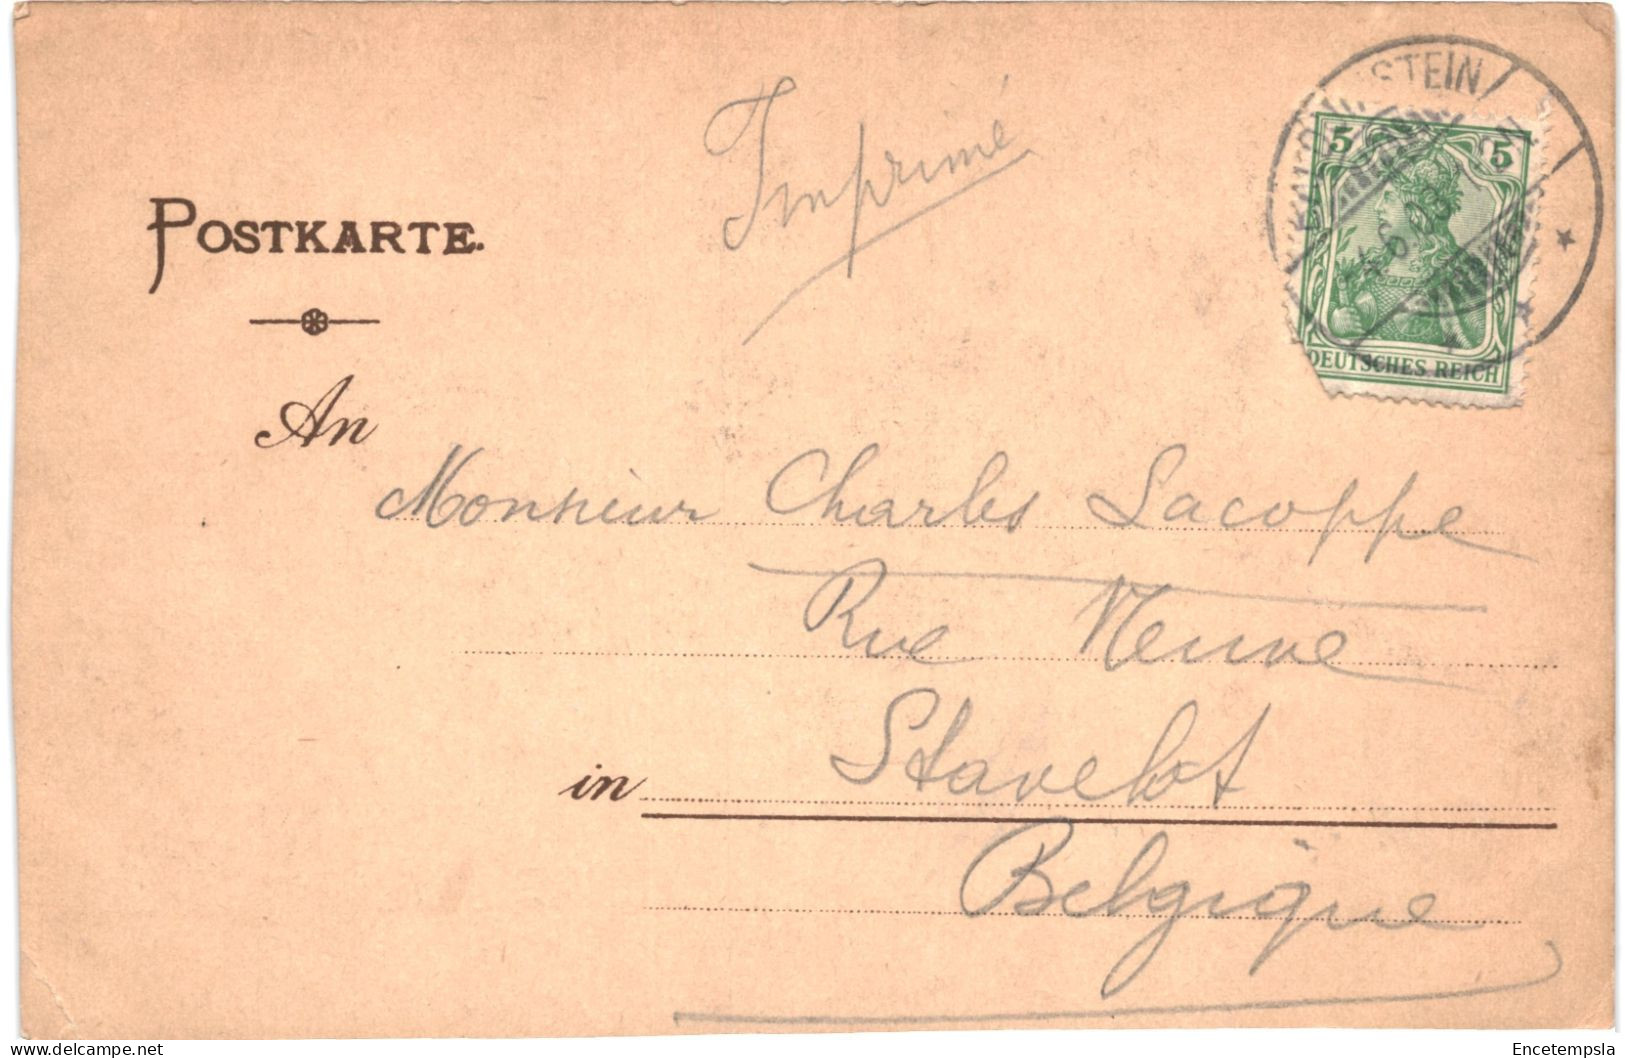 STEIN
Imprimé
5 5
POSTKARTE.
DEUTSCHES REICH
An
Monsieur Charles Lacoppe
Rue Neuve
in Stavelot
Belgique
delcampe.net
Encetempsla